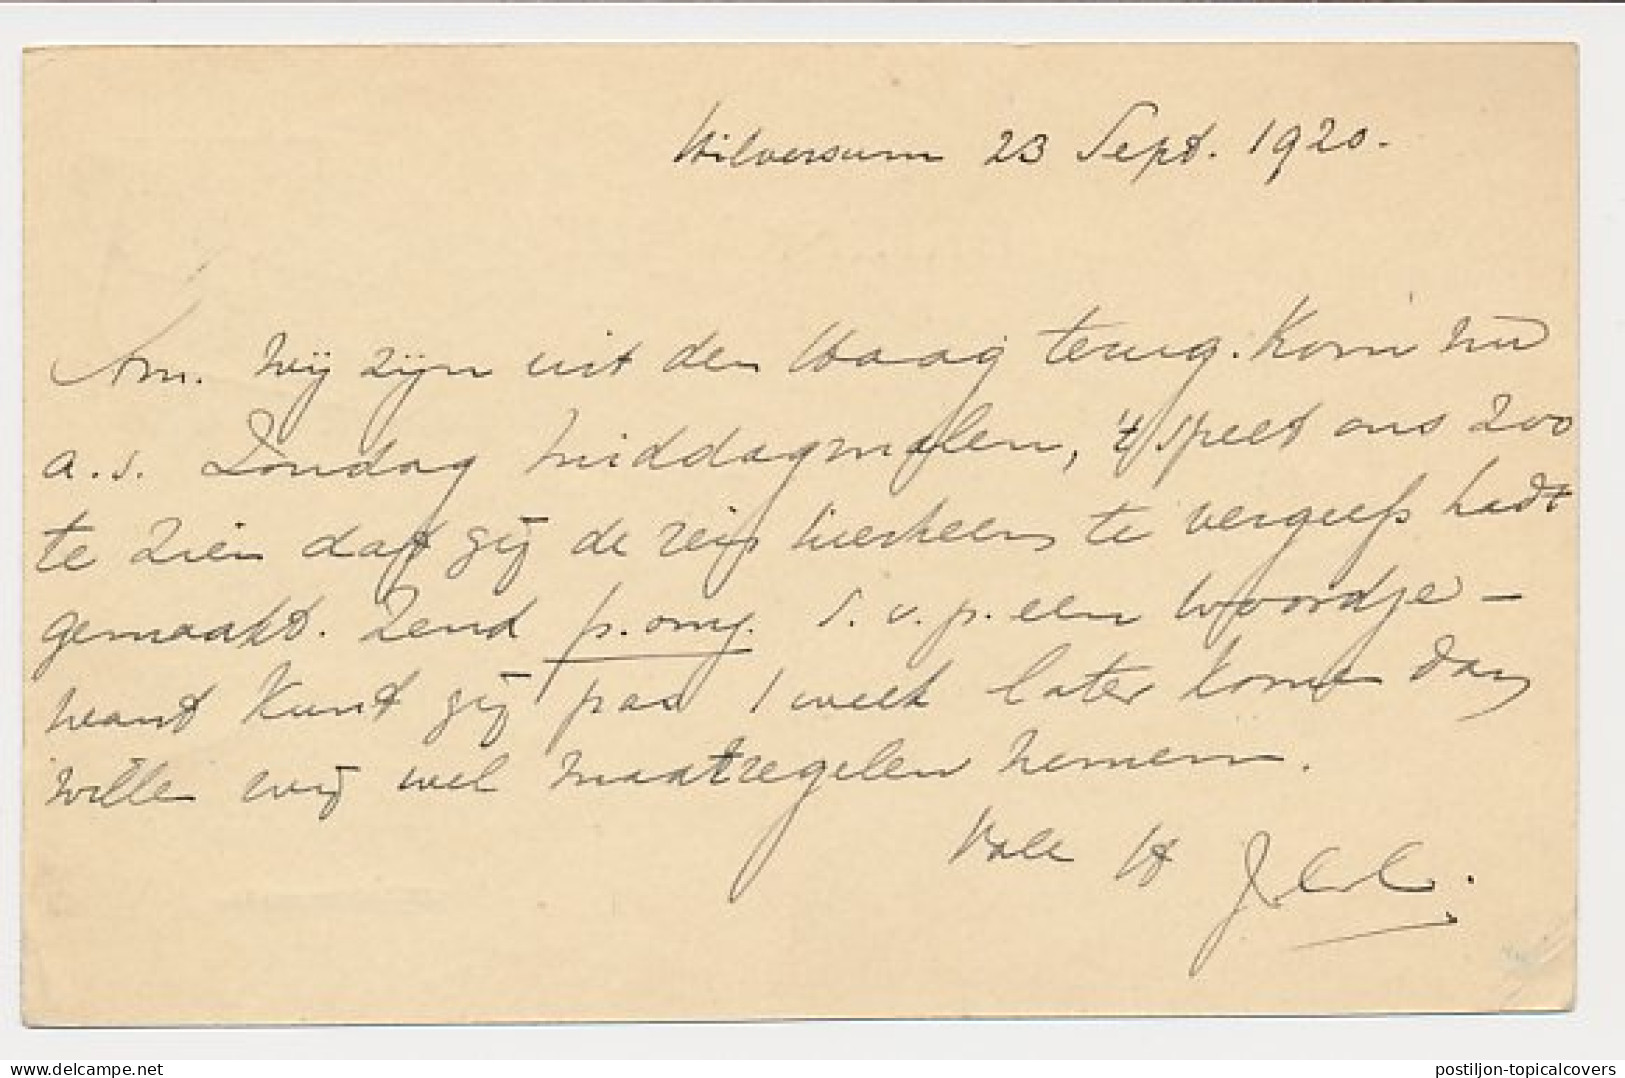 Hilversum 23 Sept. 1920.
Am. Wij zijn uit den Haag terug. Kom nu
a.s. Zondag middagmalen, 't speet ons zoo
te zien dat gij de reis hierheen te vergeefs hadt
gemaakt. Zend p. omg. s.v.p. een woordje –
want kunt gij pas 1 week later komen dan
willen wij wel maatregelen nemen.
Vale tt
delcampe.net
postiljon-topicalcovers